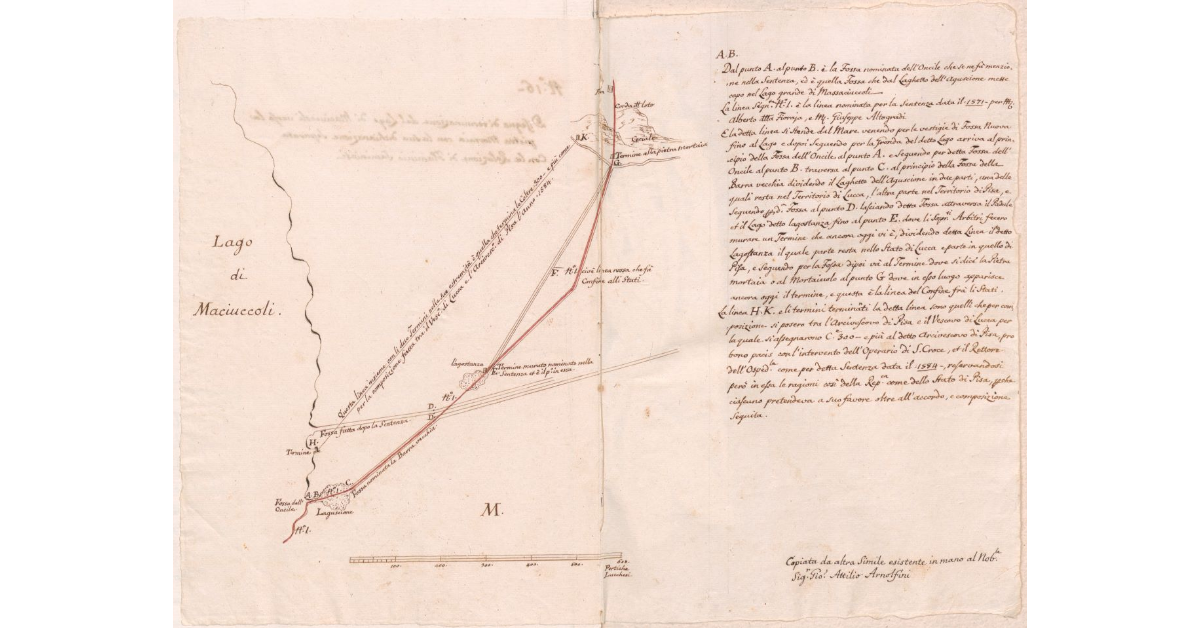 Lago
di
Maciuccoli.
Questa linea insieme con li due Termini nelle due estremità, è quella che termina le Coltre 300. e più come
per la composizione fatta tra il Vesc.º di Lucca e l'Arcivesc.º di Pisa l'anno 1584.
B.K.
Corda M. loto
Termine alla pietra mortaia
G.
F.
Nº. 1. cioè linea rossa che fà
Confine alli Stati.
Lagostanza
E.
Termine murato nominato nella
Sentenza et è il più in essa.
Nº. 1.
D.
D.
Fossa fatta dopo la Sentenza
H.
Termine
Fossa nominata la Barra vecchia
A. B. Nº. 1. C.
Fossa dell'
Oncile.
Laguscione
Nº. 1.
M.
100. 200. 300. 400. 500. 600.
Pertiche
Lucchesi
A. B.
Dal punto A. al punto B. è la Fossa nominata dell'Oncile che se ne fà menzio-
ne nella Sentenza, ed è quella Fossa che dal Laghetto dell'Aguscione mette
capo nel Lago grande di Massaciuccoli.
La linea Segn.ª Nº. 1. è la linea nominata per la Sentenza data il 1571. per M.
Alberto Fiorajo, e M. Giuseppe Altogradi.
E la detta linea si stende dal Mare venendo per le vestigie di Fossa Nuova
fino al Lago e dipoi Seguendo per la fronda del detto Lago arriva al prin-
cipio della Fossa dell'Oncile al punto A. e Seguendo per detta Fossa dell'
Oncile al punto B. traversa al punto C. al principio della Fossa della
Barra vecchia dividendo il Laghetto dell'Aguscione in due parti, una delle
quali resta nel Territorio di Lucca, l'altra parte nel Territorio di Pisa, e
Seguendo p. d.ª Fossa al punto D. lasciando detta Fossa attraversa il Padule
et il Lago detto lagostanza fino al punto E. dove li Sig.ri Arbitri fecero
murare un Termine che ancora oggi vi è, dividendo detta Linea il detto
Lagostanza il quale parte resta nello Stato di Lucca e parte in quello di
Pisa, e Seguendo per la Fossa dipoi và al Termine dove si dice la Pietra
mortaia o al Mortaiuolo al punto G. dove in esso luogo apparisce
ancora oggi il termine, e questa è la linea del Confine frà li Stati.
La linea H. K. e li termini terminati la detta linea sono quelli che per com-
posizione si posero tra l'Arcivescovo di Pisa e il Vescovo di Lucca per
la quale si assegnarono C.e 300 e più al detto Arcivescovo di Pisa, pro
bono pacis con l'intervento dell'Operario di S. Croce, et il Rettore
dell'Osped.le come per detta Sentenza data il 1584, reservandosi
però in essa le ragioni così della Rep.ca come dello Stato di Pisa, perche
ciascuno pretendeva a suo favore oltre all'accordo, e composizione
Seguita.
Copiata da altra Simile esistente in mano al Nob.le
Sig.r Gio. Attilio Arnolfini